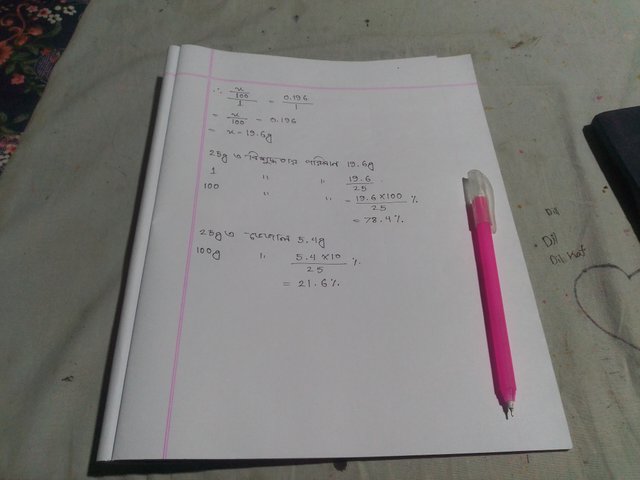 ∴ x/100 / 1 = 0.196 / 1
= x/100 = 0.196
= x = 19.6g
25g এ বিশুদ্ধতার পরিমান 19.6g
1 " " 19.6/25
100 " " = 19.6 × 100 / 25 %
= 78.4%
25g এ ভেজাল 5.4g
100g " 5.4 × 10 / 25 %
= 21.6%
Dil
Dil
Dil